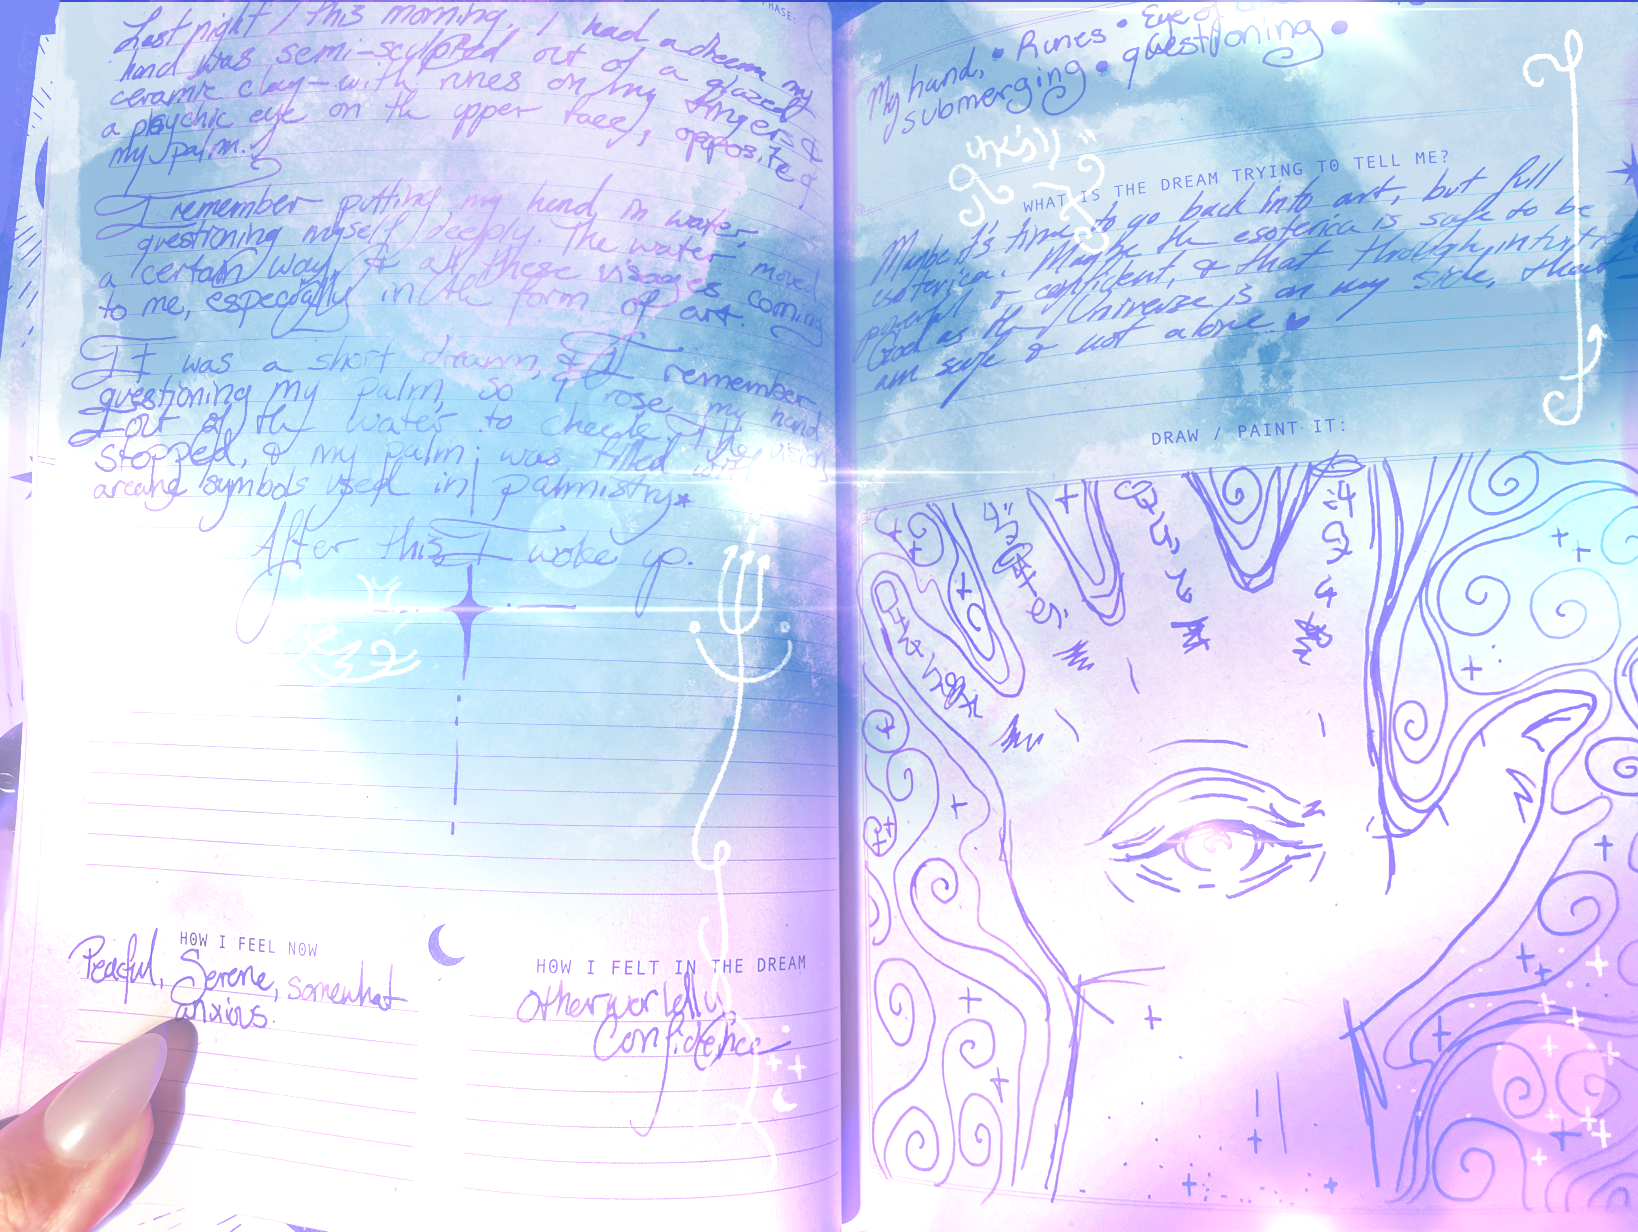 PHASE:
Last night / this morning, I had a dream my
hand was semi-sculpted out of a glazed
ceramic clay—with runes on my fingers &
a psychic eye on the upper face, opposite of
my palm.
I remember putting my hand in water,
questioning myself deeply. The water moved
a certain way, & all these visages coming
to me, especially in the form of art.
It was a short dream, & I remember
questioning my palm, so I rose my hand
out of the water to check. The vision
stopped, & my palm was filled with
arcane symbols used in palmistry
After this I woke up.
HOW I FEEL NOW
Peaful, Serene, somewhat
anxious.
HOW I FELT IN THE DREAM
Otherworlelly,
Confidence
My hand, • Runes • Eye of
submerging • questioning •
WHAT IS THE DREAM TRYING TO TELL ME?
Maybe it's time to go back into art, but full
esoterica. Maybe the esoterica is safe to be
powerful & confident, & that through
God as the Universe is on my side, that I
am safe & not alone ♥
DRAW / PAINT IT: